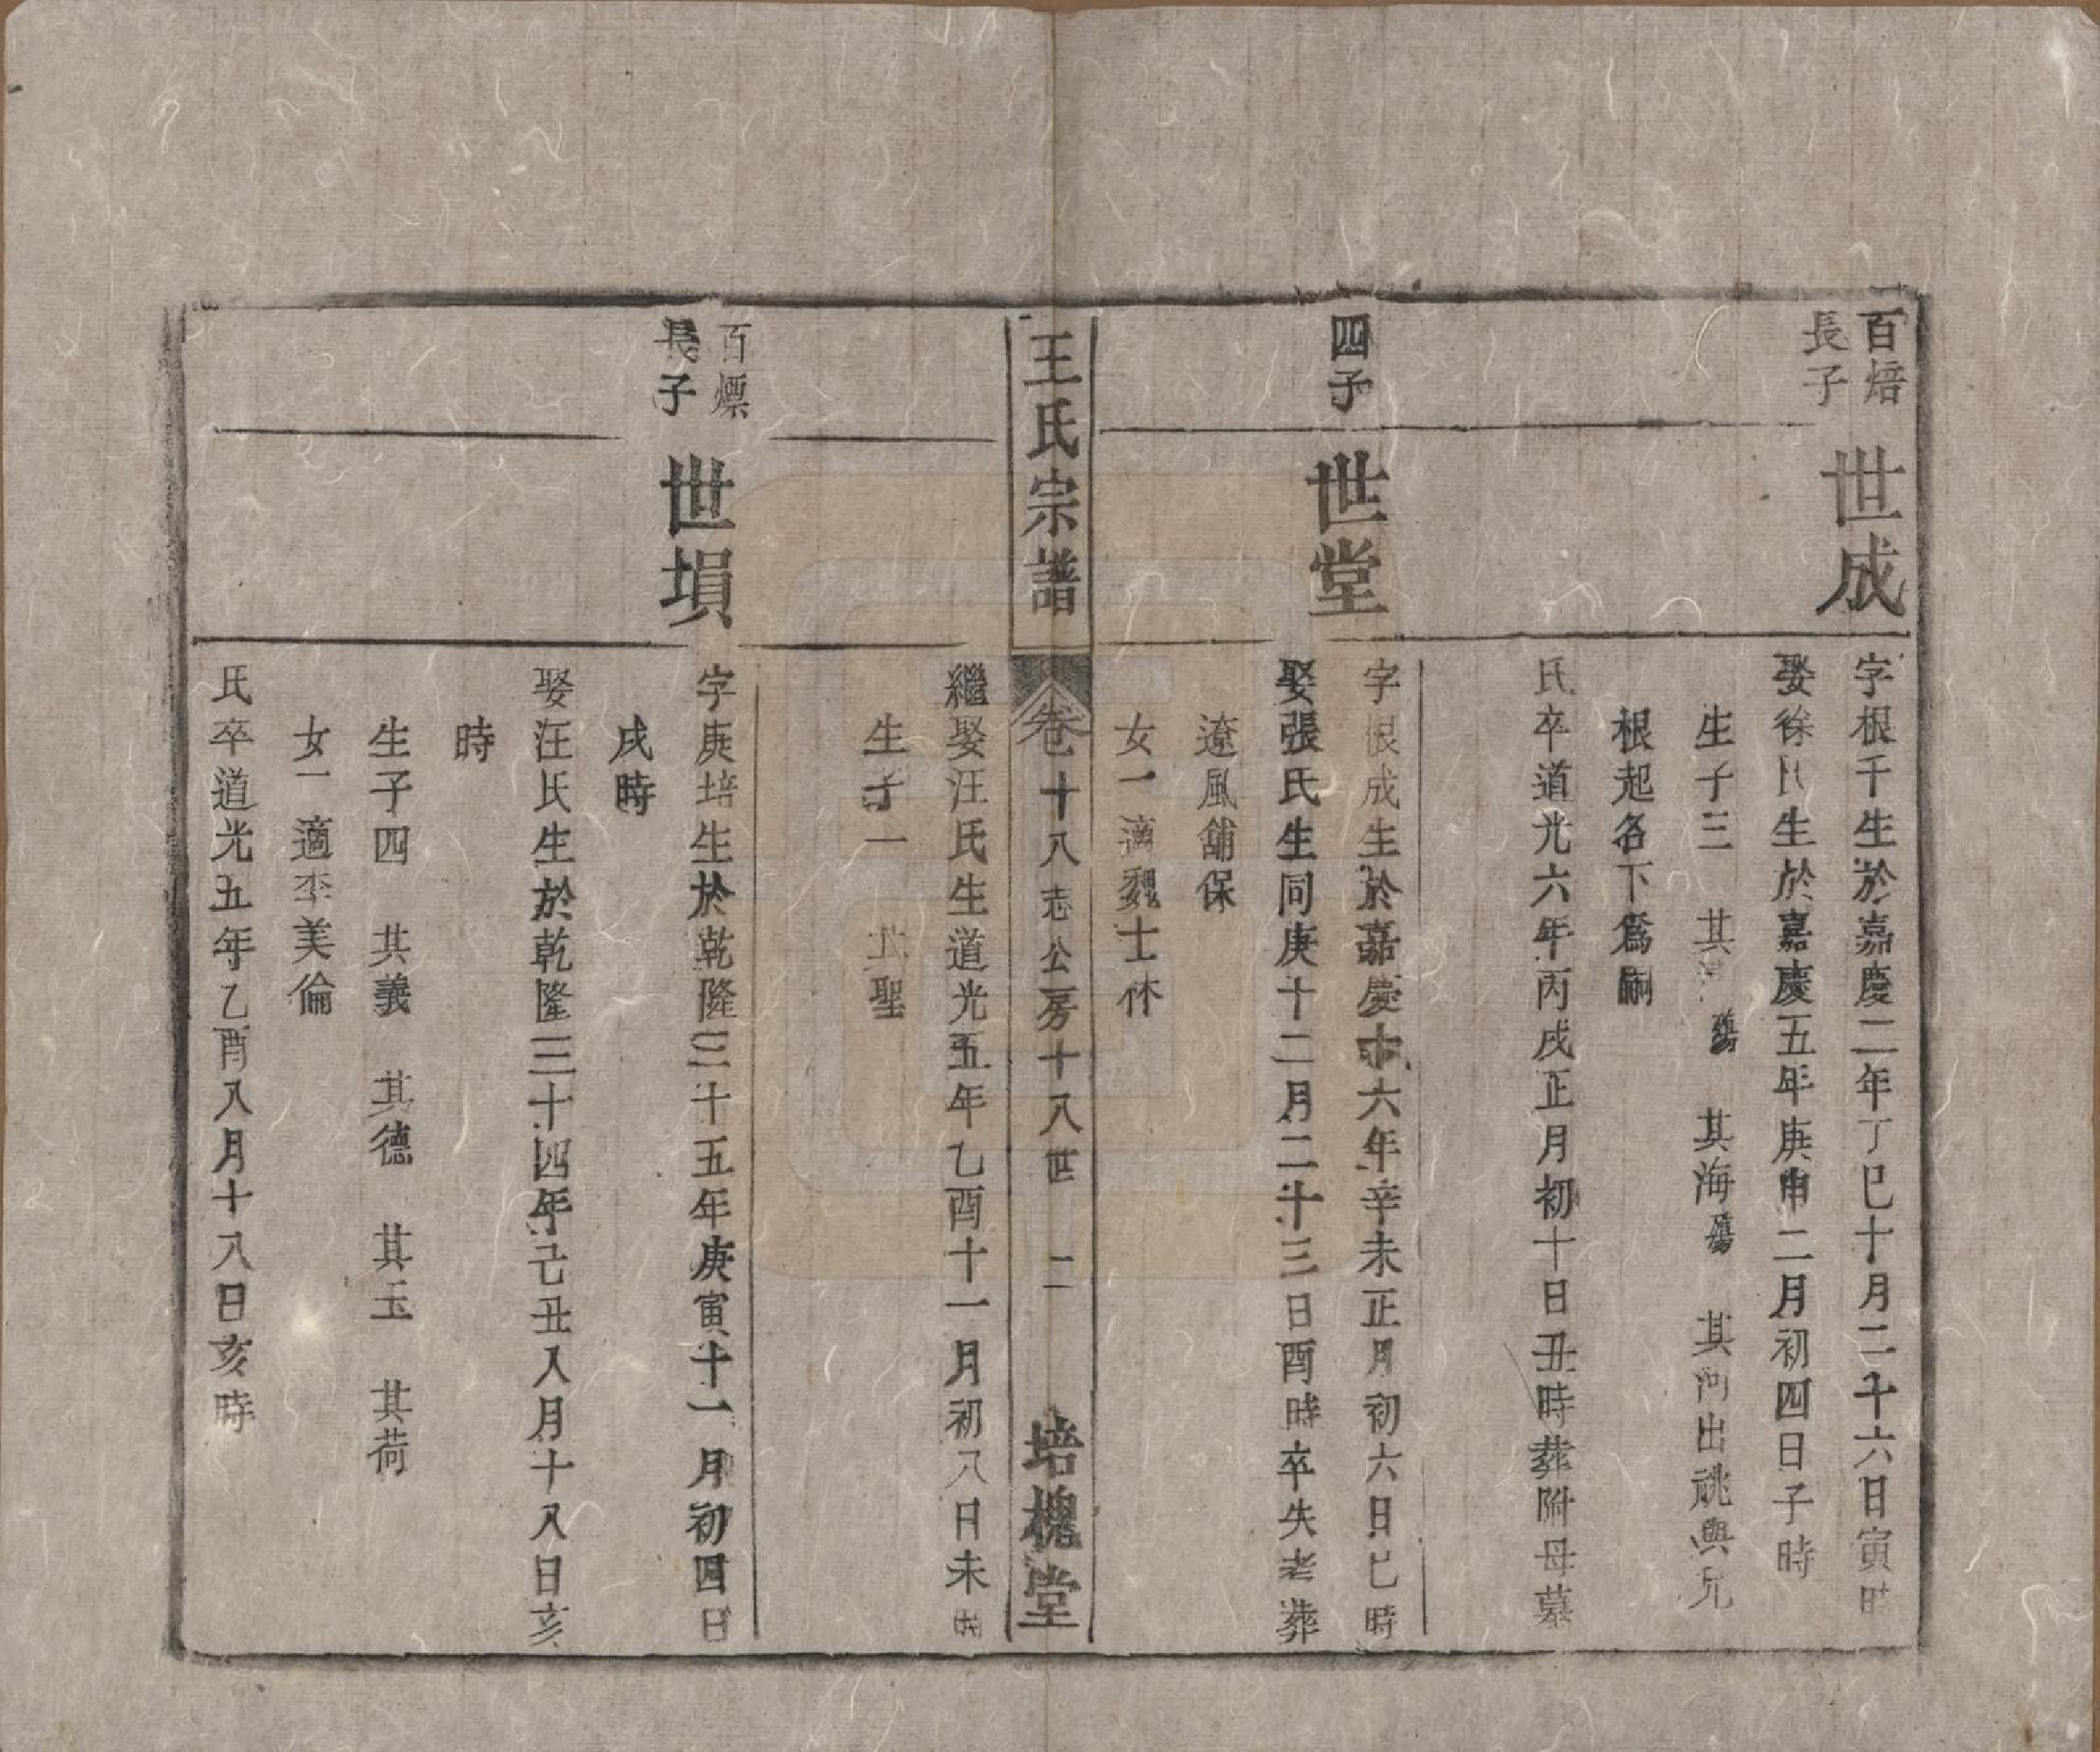 百焙
長子
世成
字根千生於嘉慶二年丁巳十月二十六日寅時
娶徐氏生於嘉慶五年庚申二月初四日子時
生子三 其 殤 其海殤 其河出祧與兄
根起名下爲嗣
氏卒道光六年丙戌正月初十日丑時葬附母墓
四子
世堂
字根成生於嘉慶十六年辛未正月初六日巳時
娶張氏生同庚十二月二十三日酉時卒失老葬
遼風舖保
女一適魏士休
王氏宗譜
卷十八志公房十八世 二
培槐堂
繼娶汪氏生道光五年乙酉十一月初八日未時
生子一 其聖
百㶾
長子
世塤
字庚培生於乾隆三十五年庚寅十一月初四日
戌時
娶汪氏生於乾隆三十四年己丑八月十八日亥
時
生子四 其義 其德 其玉 其荷
女一適李美倫
氏卒道光五年乙酉八月十八日亥時